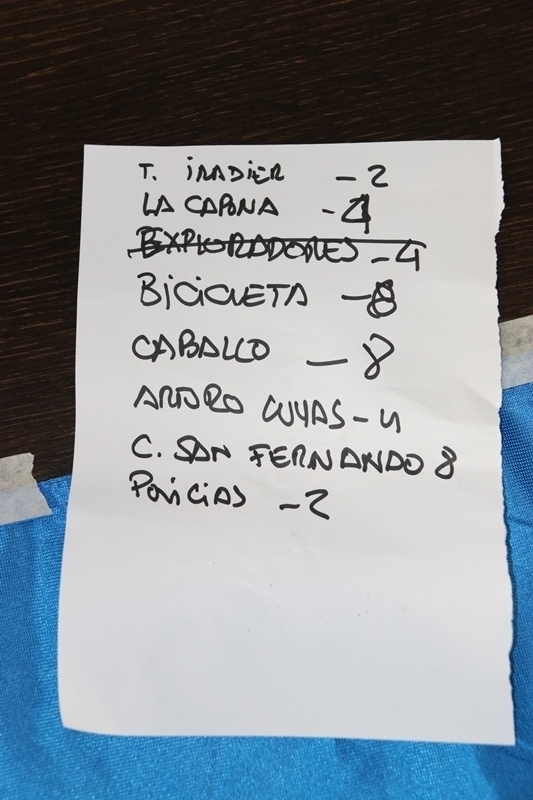 T. IRADIER - 2
LA CABRA - 4
EXPLORADORES - 4
BICICLETA - 8
CABALLO - 8
ARTURO CUYAS - 4
C. SAN FERNANDO 8
POLICIAS - 2